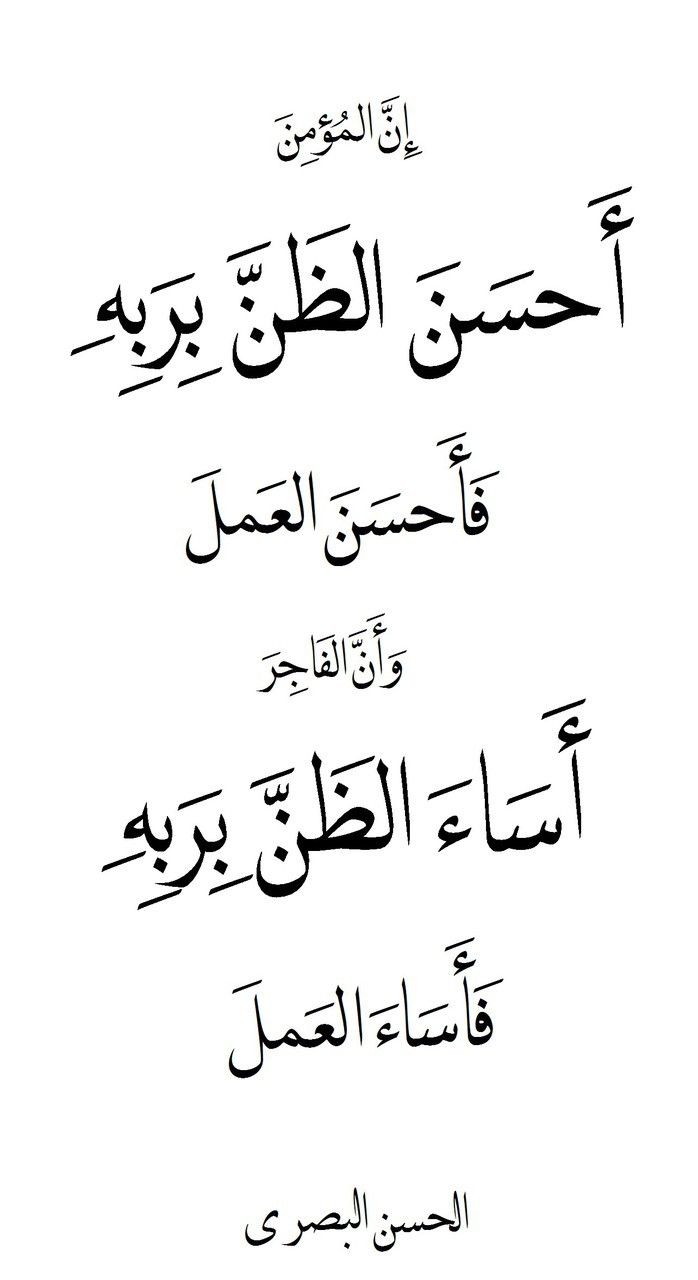 إِنَّ المُؤمِنَ
أَحسَنَ الظَنَّ بِرَبِهِ
فَأَحسَنَ العَملَ
وَأَنَّ الفَاجِرَ
أَسَاءَ الظَنَّ بِرَبِهِ
فَأَسَاءَ العَملَ
الحسن البصرى